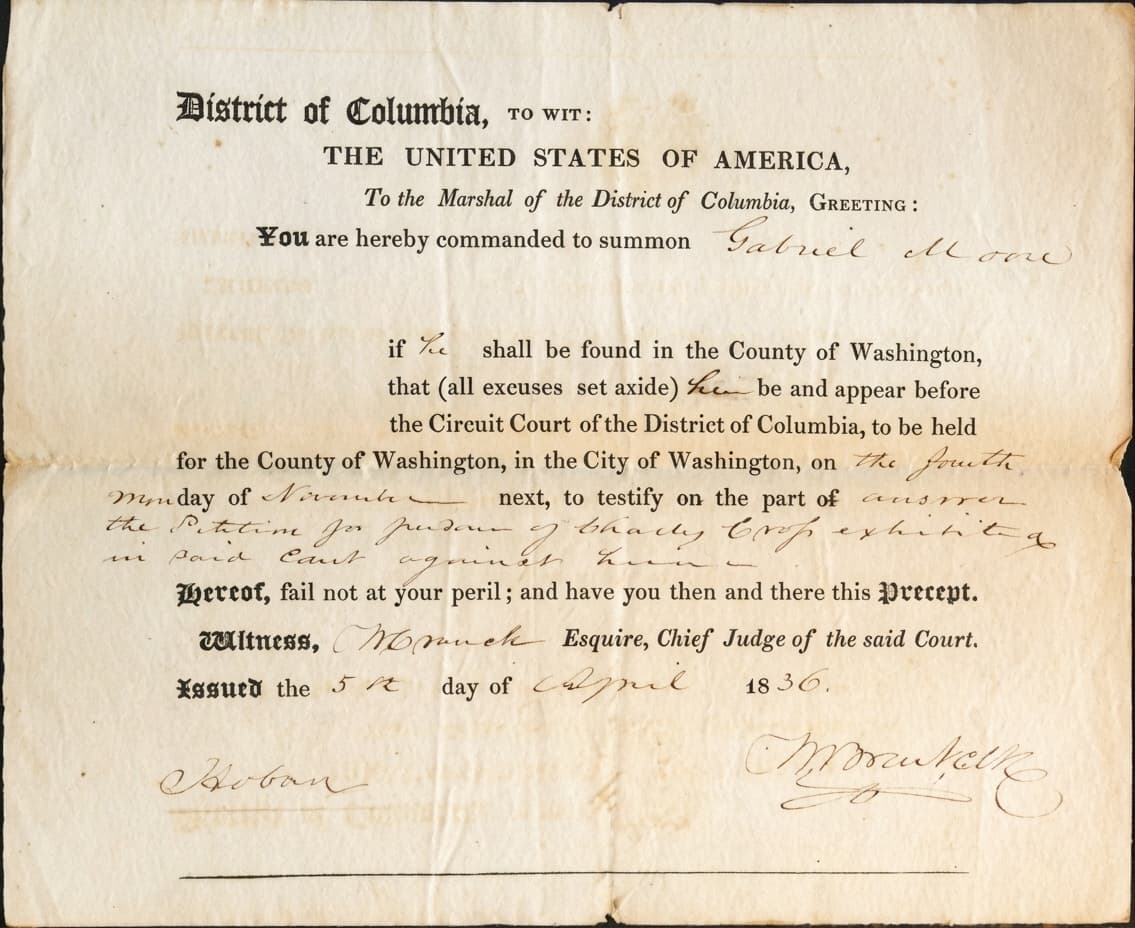 District of Columbia, TO WIT:
THE UNITED STATES OF AMERICA,
To the Marshal of the District of Columbia, GREETING:
You are hereby commanded to summon Gabriel Moore
if he shall be found in the County of Washington,
that (all excuses set axide) he be and appear before
the Circuit Court of the District of Columbia, to be held
for the County of Washington, in the City of Washington, on the fourth
monday of November next, to testify on the part of answer
the Petition for freedom of Charles Cross exhibited
in said Court against him
Hereof, fail not at your peril; and have you then and there this Precept.
Witness, W Cranch Esquire, Chief Judge of the said Court.
Issued the 5th day of April 1836.
Hoban
W. Brent Clk